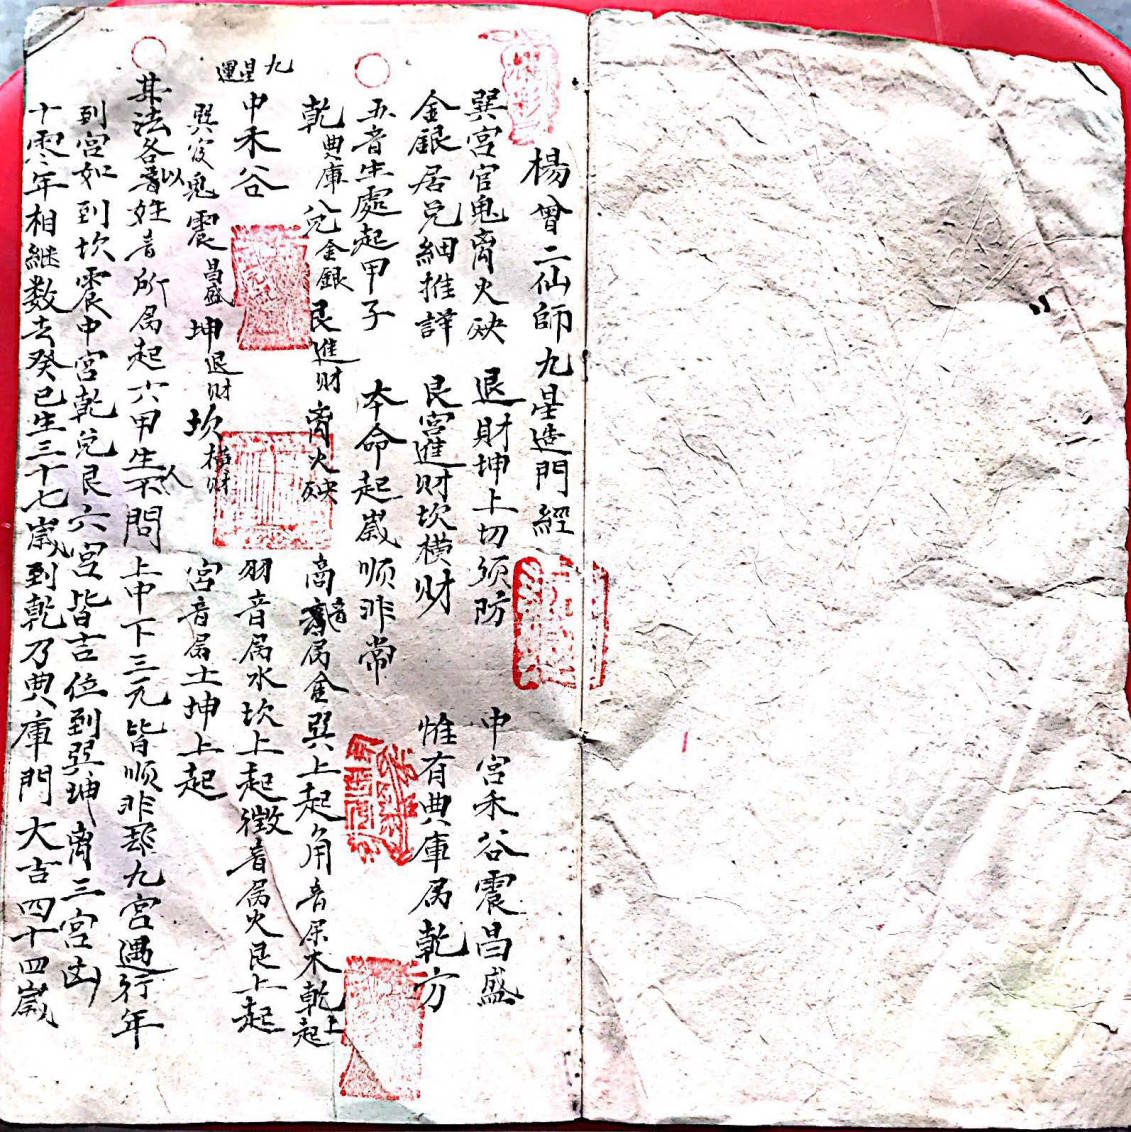 楊曾二仙師九星造門經
巽宮官鬼离火殃 退財坤上切须防 中宮禾谷震昌盛
金銀居兑細推詳 艮宮進财坎横财 惟有典庫属乾方
五音生處起甲子 本命起嵗順非常
乾典庫 兑金銀 艮進财 离火殃 商音属金巽上起角音属木乾上起
九星運
中禾谷 羽音属水坎上起徵音属火艮上起
巽官鬼 震昌盛 坤退财 坎横财 宮音属土坤上起
其法各以音姓音所属起六甲生人不問上中下三元皆順非都九宮遇行年
到宮如到坎震中宮乾兑艮六宮皆吉位到巽坤离三宮凶
十零年相継数去癸巳生三十七嵗到乾乃典庫門大吉四十四嵗